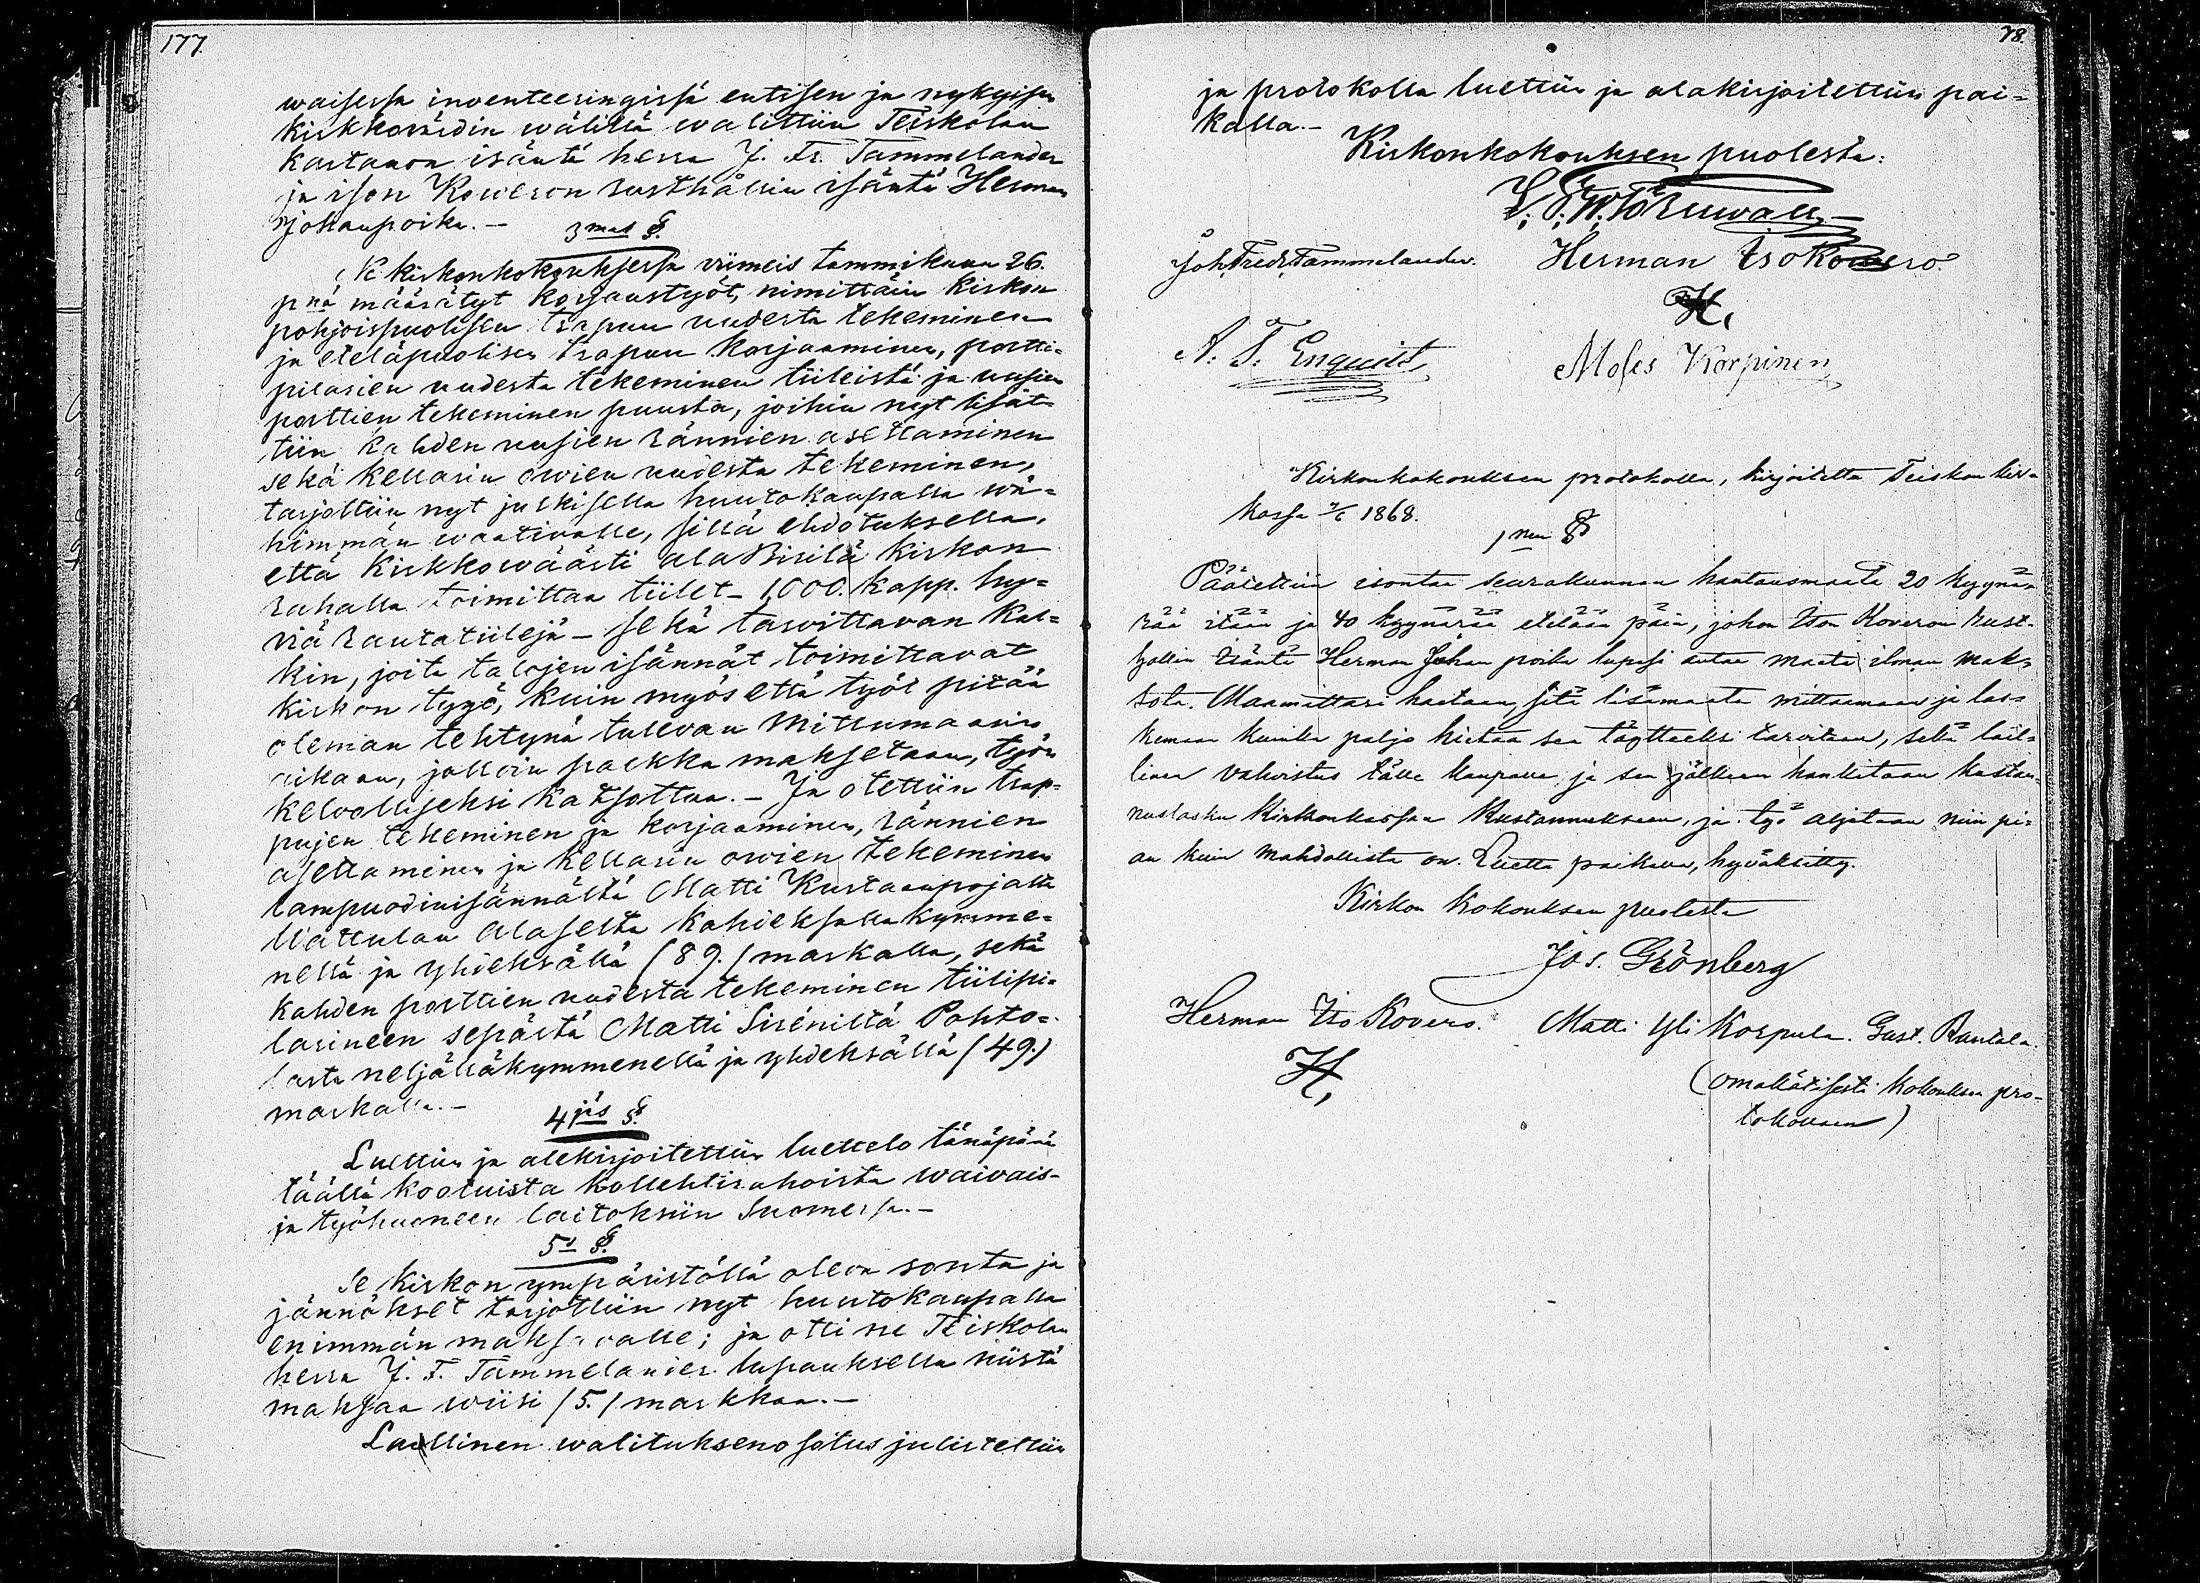 177.
waisessa inventeeringissä entisen ja nykyisen
kirkkoväädin wälillä walittiin Teiskolan
kartanon isäntä herra J. Fr. Tammelander
ja ison Koweron rusthållin isäntä Herman
Johanpoika. —
3mas §.
kirkonkokouksessa viimeis tammikuun 26.
pnä määrätyt korjaustyöt, nimittäin kirkon
pohjoispuolisen trapun uudesta tekeminen
ja eteläpuolisen trapun korjaaminen, portti-
pilarien uudesta tekeminen tiileistä ja uusien
porttien tekeminen puusta, joihin nyt lisät-
tiin kahden uusien rännien asettaminen
sekä kellarin owien uudesta tekeminen,
tarjottiin nyt julkisella huutokaupalla wä-
himmän waativalle, sillä ehdotuksella,
että kirkkowäärti alaBirilä kirkon
rahalla toimittaa tiilet — 1,000 kapp. hy-
viä rautatiilejä — sekä tarvittavan kal-
kin, joita talojen isännät toimittavat
kirkon työö, kuin myös että työt pitää
oleman tehtynä tulevan Mittumaarin
aikaan, jolloin palkka maksetaan, työn
kelvolliseksi katsottua. — Ja otettiin trap-
pujen tekeminen ja korjaaminen, rännien
asettaminen ja kellarin owien tekeminen
lampuodinisännältä Matti Kustaanpojalta
Wattulan Alaselta kahdeksallakymme-
nellä ja yhdeksällä (89.) markalla, sekä
kahden porttien uudesta tekeminen tiilipi-
larineen sepästä Matti Sireniltä Pohto-
lasta neljälläkymmenellä ja yhdeksällä (49.)
markalla. —
4jäs §.
Luettiin ja alekirjoitettiin luettelo tänäpänä
täällä kootuista kollehtirahoista waivais-
ja työhuoneen laitoksiin Suomessa. —
5s §.
Se kirkon ympäristöllä oleva sonta ja
jännökset tarjottiin nyt huutokaupalla
enimmän maksavalle; ja otti ne Teiskolan
herra J. F. Tammelander lupauksella niistä
maksaa wiisi (5.) markkaa. —
Laillinen walituksenosotus julistettiin
78.
ja protokolla luettiin ja alakirjoitettiin pai-
kalla. —
Kirkonkokouksen puolesta:
Joh. Fredr. Tammelander. Herman Iso Kowero.
H,
A. F. Enquist, Moses Korpinen
Kirkonkokouksen protokolla, kirjoitettu Teiskon kir-
kossa 7/6 1868.
1nen §
Päätettiin isontaa seurakunnan hautausmaata 20 kyynä-
rää itään ja 40 kyynärää etelään päin, johon Ison Koveron Rust-
hollin isäntä Herman Johan poika lupasi antaa maata ilman mak-
sota. Maamittari haetaan sitä lisämaata mittaamaan ja las-
kemaan kuinka paljo hietaa sen täytteeksi tarvitaan, sekä lail-
linen vahvistus tälle kaupalle ja sen jälkeen hankitaan kustan-
nuslasku kirkonkassan kustannukseen, ja työ aljetaan niin pi-
an kuin mahdollista on. Luettu paikalla, hyväksitty.
Kirkon kokouksen puolesta
Jos. Grönberg
Herman Iso Kovero. Matti Yli Korpula. Gust. Rantala.
H,
(omakätisesti kokouksen pro-
tokollaan)